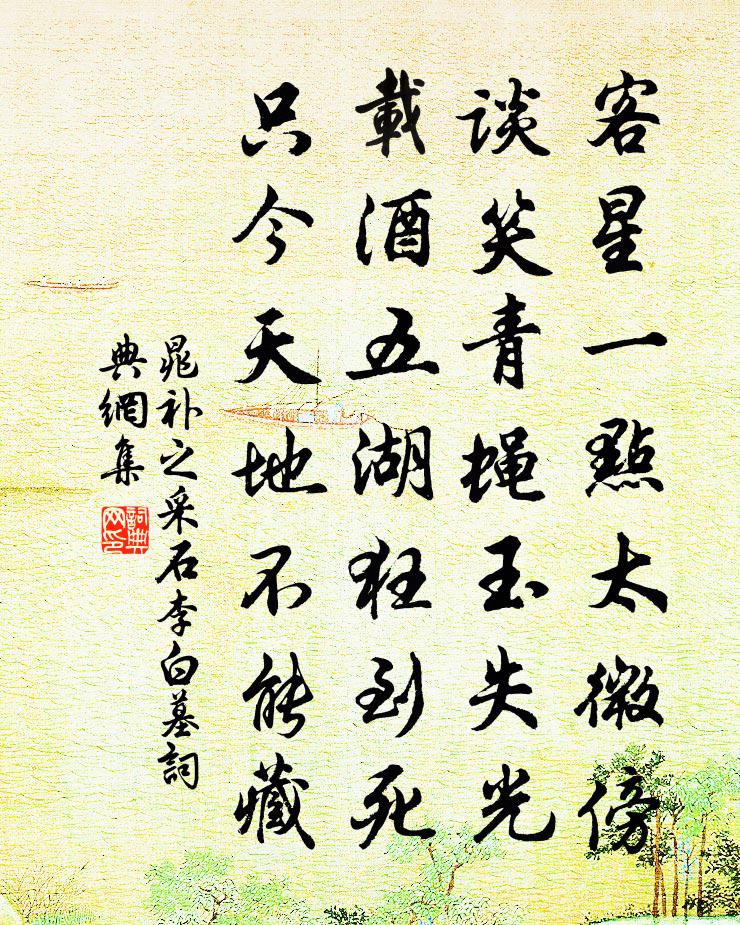 客星一點太微傍
談笑青蝇玉失光
載酒五湖狂到死
只今天地不能藏
晁补之采石李白墓詞
典網集
詞典
网印